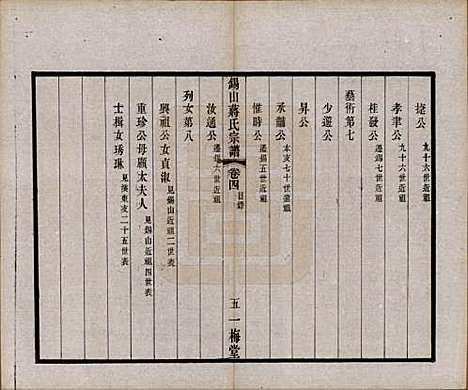 捷公 九十六世近祖
孝聿公 九十六世近祖
桂發公 遷錫七世近祖
藝術第七
少遊公
昇公
承龍公 本支七十世
惟時公 遷錫五世近祖
錫山蔣氏宗譜 卷四 目錄 五 一梅堂
汝通公 遷錫六世近祖
列女第八
興祖公女貞淑 見錫山近祖二世表
重珍公母顧太夫人 見錫山近祖四世表
士楫女琇琳 見支二十五世表